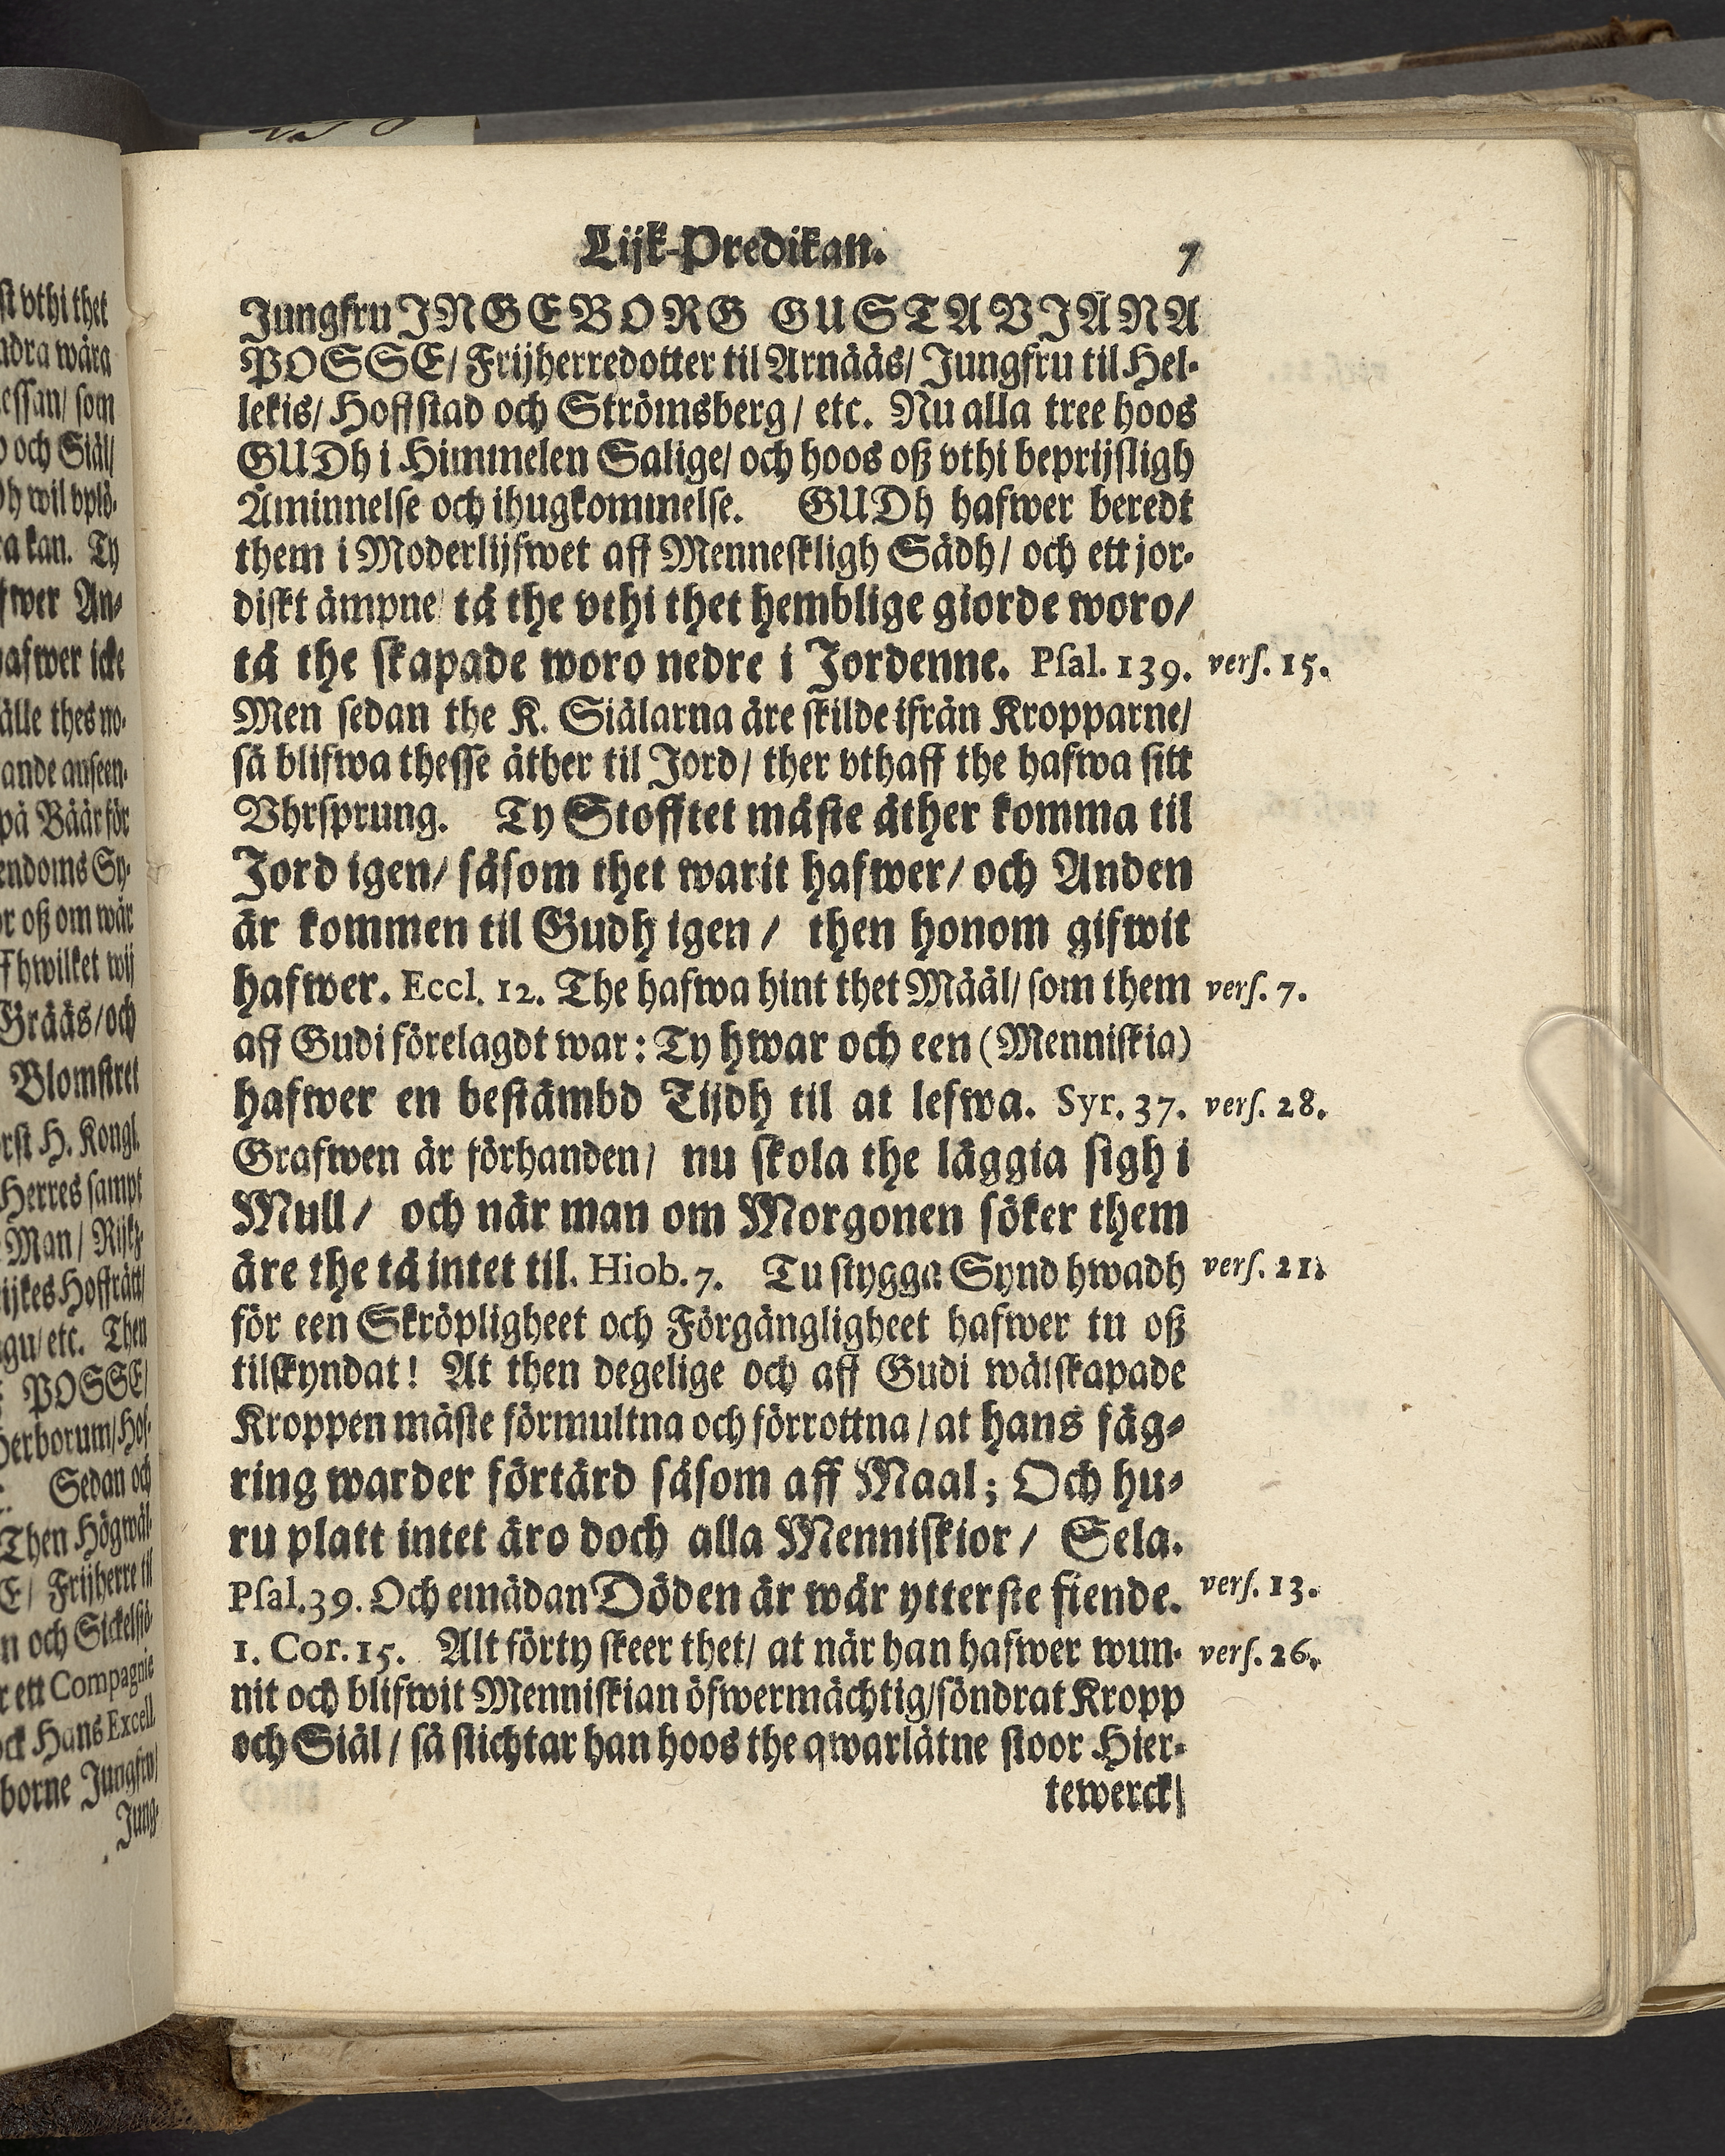 Lijk-Predikan. 7
Jungfru INGEBORG GUSTAVIANA
POSSE/ Frijherredotter til Arnääs/ Jungfru til Hel-
lekis/ Hoffstad och Strömsberg/ etc. Nu alla tree hoos
GUDh i Himmelen Salige/ och hoos oß vthi beprijsligh
Åminnelse och ihugkommelse. GUDh hafwer beredt
them i Moderlijfwet aff Menneskligh Sädh/ och ett jor-
diskt ämpne/ tå the vthi thet hemblige giorde woro/
tå the skapade woro nedre i Jordenne. Psal. 139. vers. 15.
Men sedan the K. Siälarna äre skilde ifrån Kropparne/
så blifwa thesse åther til Jord/ ther vthaff the hafwa sitt
Vhrsprung. Ty Stofftet måste åther komma til
Jord igen/ såsom thet warit hafwer/ och Anden
är kommen til Gudh igen/ then honom gifwit
hafwer. Eccl. 12. The hafwa hint thet Määl/ som them vers. 7.
aff Gudi förelagdt war: Ty hwar och een (Menniskia)
hafwer en bestämbd Tijdh til at lefwa. Syr. 37. vers. 28.
Grafwen är förhanden/ nu skola the läggia sigh i
Mull/ och när man om Morgonen söker them
äre the tå intet til. Hiob. 7. Tu stygga Synd hwadh vers. 21.
för een Skröpligheet och Förgängligheet hafwer tu oß
tilskyndat! At then degelige och aff Gudi wälskapade
Kroppen måste förmultna och förrottna/ at hans fäg-
ring warder förtärd såsom aff Maal; Och hu-
ru platt intet äro doch alla Menniskior/ Sela.
Psal. 39. Och emädan Döden är wår ytterste fiende. vers. 13.
1. Cor. 15. Alt förty skeer thet/ at när han hafwer wun- vers. 26.
nit och blifwit Menniskian öfwermächtig/ söndrat Kropp
och Siäl/ så stichtar han hoos the qwarlåtne stoor Hier-
tewerck/